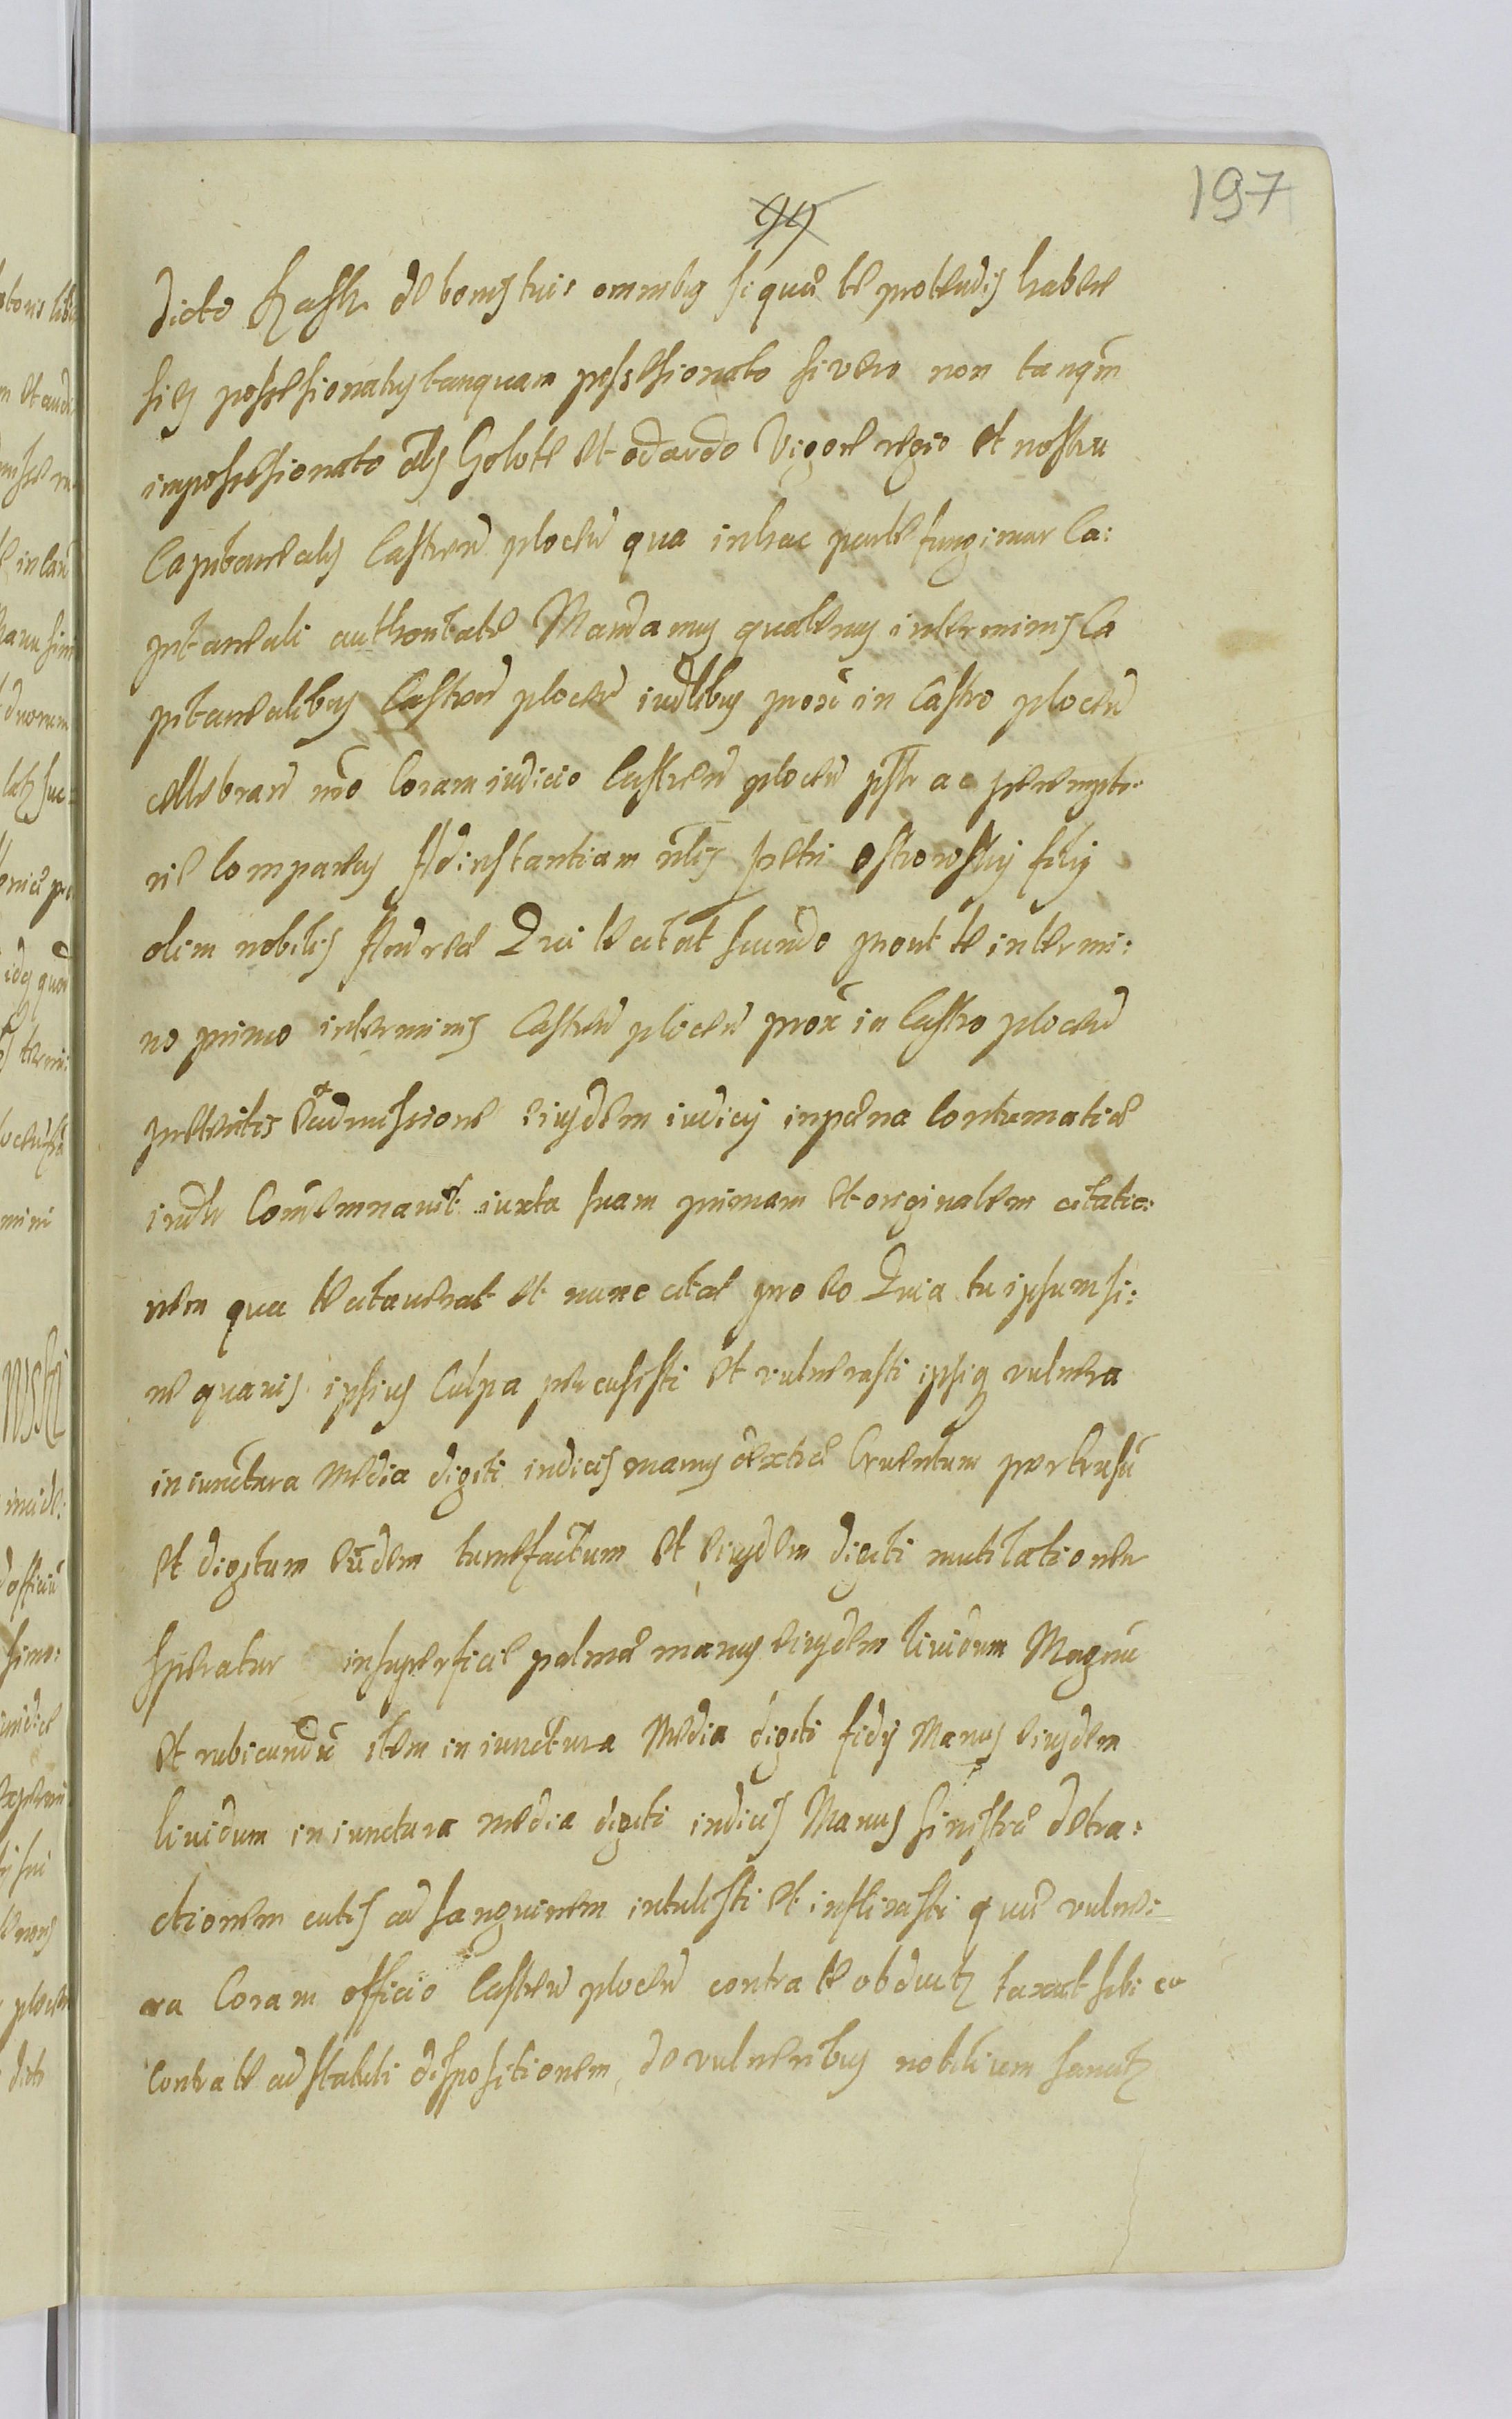 197
dicto KasK de bonis tuis omnibus si quæ te protendis habere
sis possessionatus tanquam possessionato si vero non tanqm̃
impossessionato als Golote et odardo Vigore regio et nostru
Capitanealis Castren̄ plocen̄ qua in hac parte fungimur Ca:
pitaneali authoritate Mandamus quatenus in terminis Ca
pitanealibus Castren̄ plocen̄ iudlibus prox̃ in Castro plocen̄
cellebran̄ nr̃o Coram iudicio Castren̄ plocen̄ pstr ac perempto
rie Compareas Ad instantiam nllis petri ostrowsky filij
olim nobilis Andreæ Qui te citat secundo prout te in termi:
no primo in terminis Castren̄ plocen̄ prox̃ in Castro plocen̄
preteritis ex admissione eiusdem iudicij in pæna Contumatiæ
indu Condemnavit iuxta suam primam et originalem citatio:
nem qua te citaverat et nunc citat pro eo Quia tu ipsum si:
ne quavis ipsius Culpa percussisti et vulnerasti ipsiq vulnera
in iunctura media digiti indicis manus dextræ Cruentum pertusū
et digitum eūdem tumefactum et eiusdem digiti mutilationem
speratur in superficie palmæ manus eiusdem lividum Magnū
et rubicundū item in iunctura Media digiti fidij Manus eiusdem
lividum in iunctura media digiti indicis Manus sinistræ detra:
ctionem cutis ad sanguinem intulisti et inflixisti quæ vulne:
ra Coram officio Castren̄ plocen̄ contra te obductz taxat sibi ea
Contra te ad statuti dispositionem de vulneribus nobilium sancitz